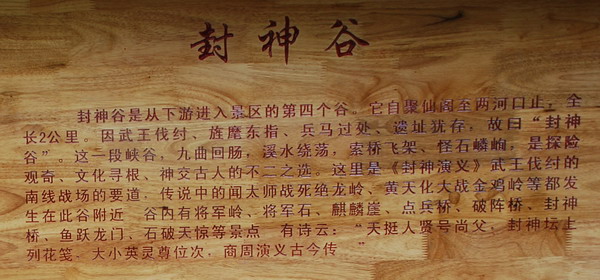 封神谷
封神谷是从下游进入景区的第四个谷。它自聚仙阁至两河口止，全
长2公里。因武王伐纣、旌麾东指、兵马过处、遗址犹存，故曰“封神
谷”。这一段峡谷，九曲回肠，溪水绕荡，索桥飞架、怪石嶙峋，是探险
观奇、文化寻根、神交古人的不二之选。这里是《封神演义》武王伐纣的
南线战场的要道，传说中的闻太师战死绝龙岭、黄天化大战金鸡岭等都发
生在此谷附近 谷内有将军岭、将军石、麒麟崖、点兵桥、破阵桥、封神
桥、鱼跃龙门、石破天惊等景点 有诗云：“天挺人贤号尚父，封神坛上
列花笺，大小英灵尊位次，商周演义古今传 ”